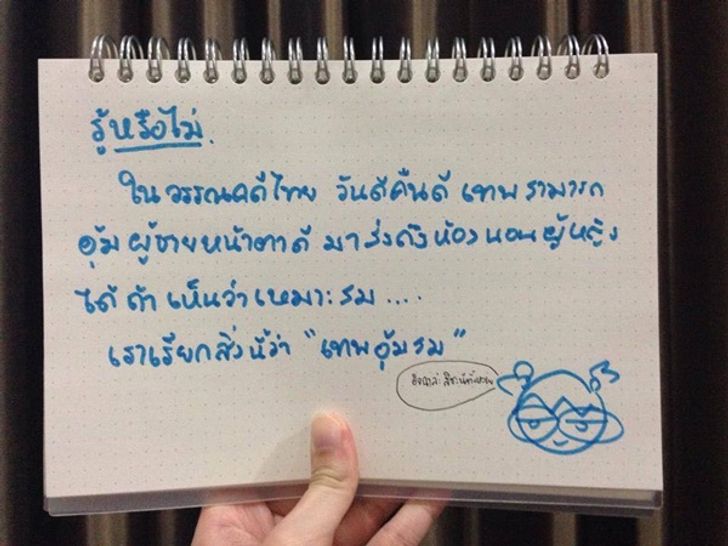 รู้หรือไม่.
ในวรรณคดีไทย วันดีคืนดี เทพสามารถ
อุ้มผู้ชายหน้าตาดี มาส่งถึงห้องนอนผู้หญิง
ได้ถ้าเห็นว่าเหมาะสม....
เราเรียกสิ่งนี้ว่า "เทพอุ้มสม"